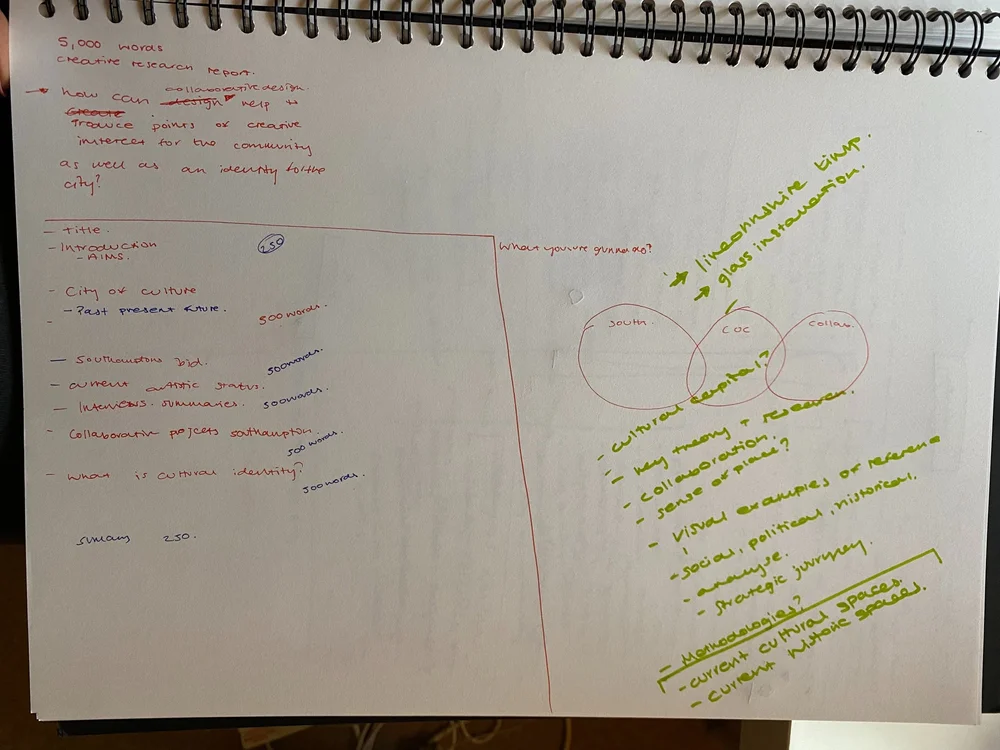 5,000 words
creative research report.
collaborative design.
how can design help to
Create
produce points of creative
interest for the community
as well as an identity to the
city?
- Title.
- Introduction 250
- AIMS.
- City of culture
- Past present future.
- 500 words.
- Southamptons bid. 500words.
- current artistic status.
- Interviews. summaries. 500words.
- Collaborative projects southampton.
500 words.
- What is cultural identity?
500words.
sumary 250.
What you're gunna do?
→ lincolnshire
→ glass installation.
South. COC Collab.
- cultural capital?
- key theory + research.
- collaboration.
- sense of place?
- visual examples or reference
- social, political, historical,
- analyse.
- strategic journey.
- Methodologies?
- current cultural spaces.
- current historic spaces.